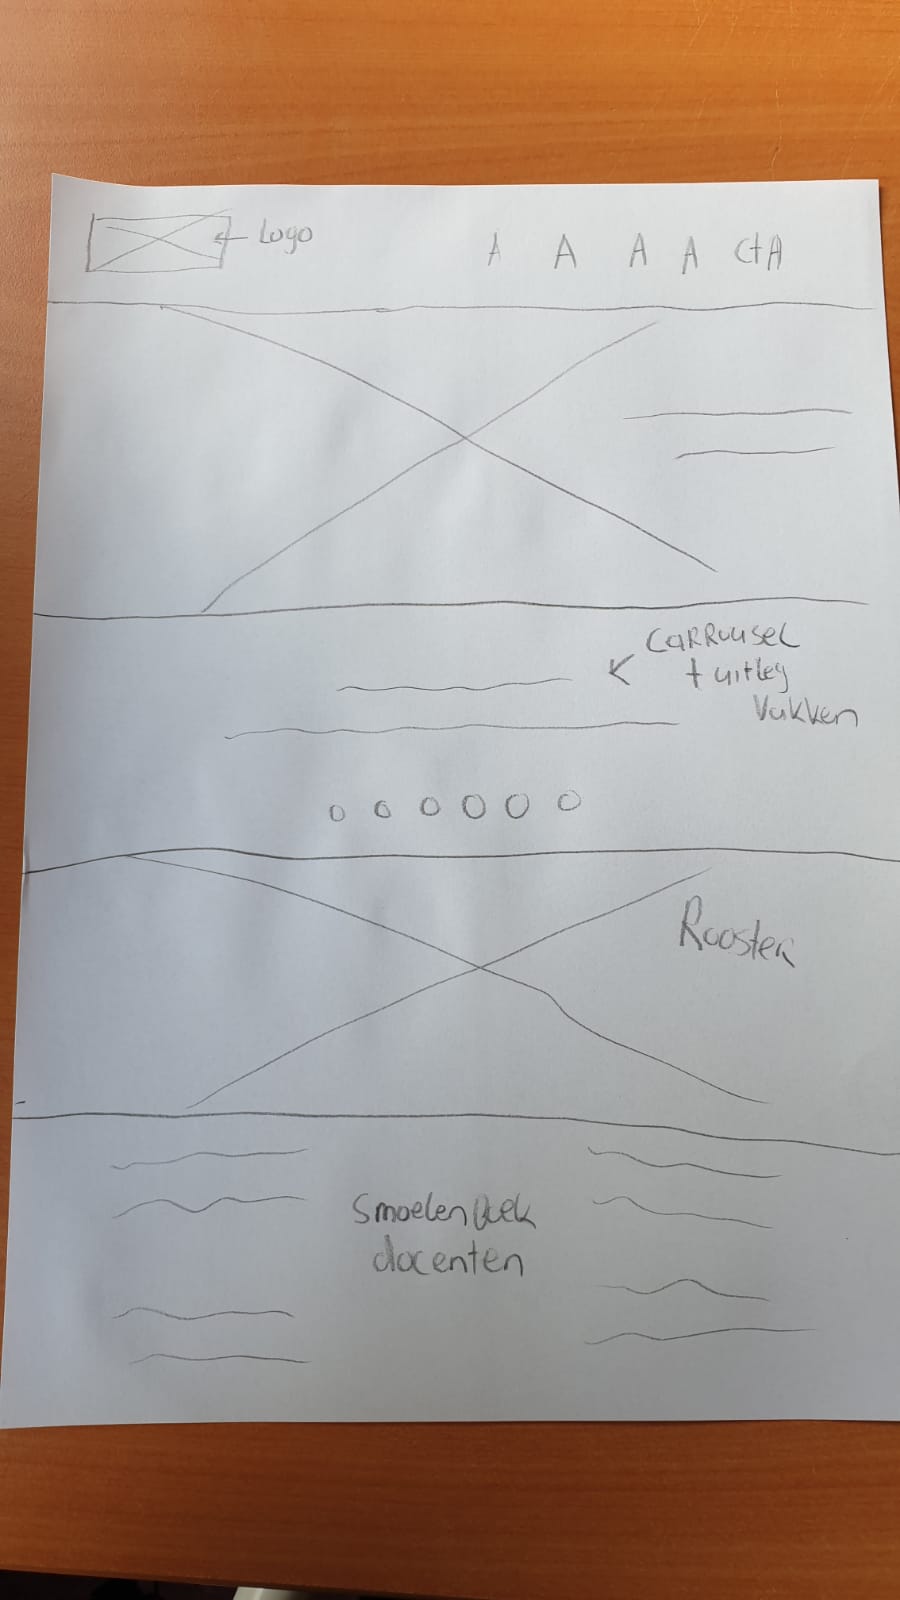 Logo
A A A A CtA
Carrousel
+ uitleg
Vakken
Rooster
Smoelenboek
docenten